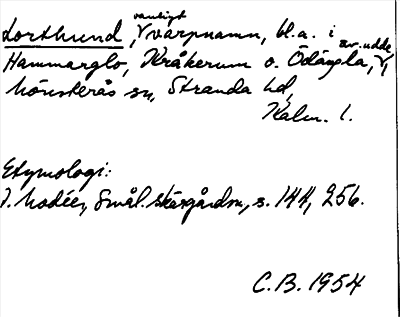 Lorthund, vanligt varpnamn, bl.a. i
Hammarglo, Kråkerum o. Ödängla, av. udde,
Mönsterås sn, Stranda hd,
Kalm. l.
Etymologi:
I. Modéer, Smål. skärgårdsn, s. 144, 256.
C.B. 1954